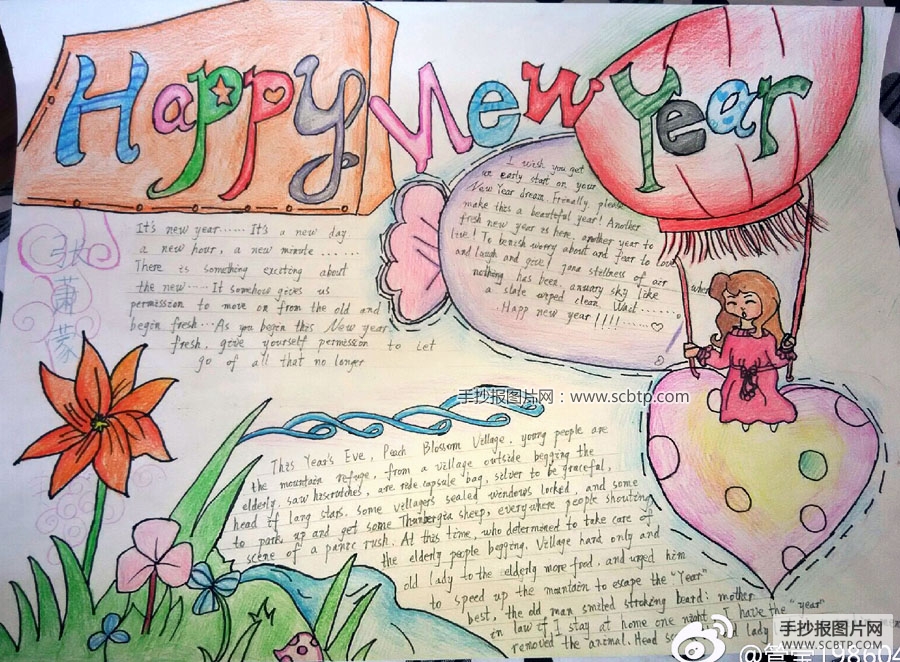 Happy New Year
It's new year...... It's a new day
a new hour, a new minute ......
There is something exciting about
the new.....It somehow gives us
permission to move on from the old and
begin fresh...As you begin this New year
fresh, give yourself permission to let
go of all that no longer
I wish you get
an early start on your
New Year dream. Frienally, please
make this a beautiful year! Another
fresh new year is here, another year to
live! To banish worry about and fear to Love
and laugh and give! gona stellness of air
nothing has been, anuary sky like where
a slate wiped clean. Wait........
Happ new year!!!!.......
张
萧
蒙
手抄报图片网:www.scbtp.com
This Year's Eve, Peach Blossom Village, young people are
the mountain refuge, from a village outside begging the
elderly, saw hiscrutches, arm ride capsule bag, silver to be graceful,
head if lang stars. Some villagers sealed windows locked, and some
to park up and get some Thunbergia sheep, everywhere people shouting
scene of a panic rush. At this time, who determined to take care of
the elderly people begging. Village hard only and
old lady to the elderly more food, and urged him
to speed up the mountain to escape the "Year"
best, the old man smiled stroking beard: mother
in law if I stay at home one night, I have the "year"
removed the animal. Head lady
手抄报图片网
SCBTP.COM
@ 198604